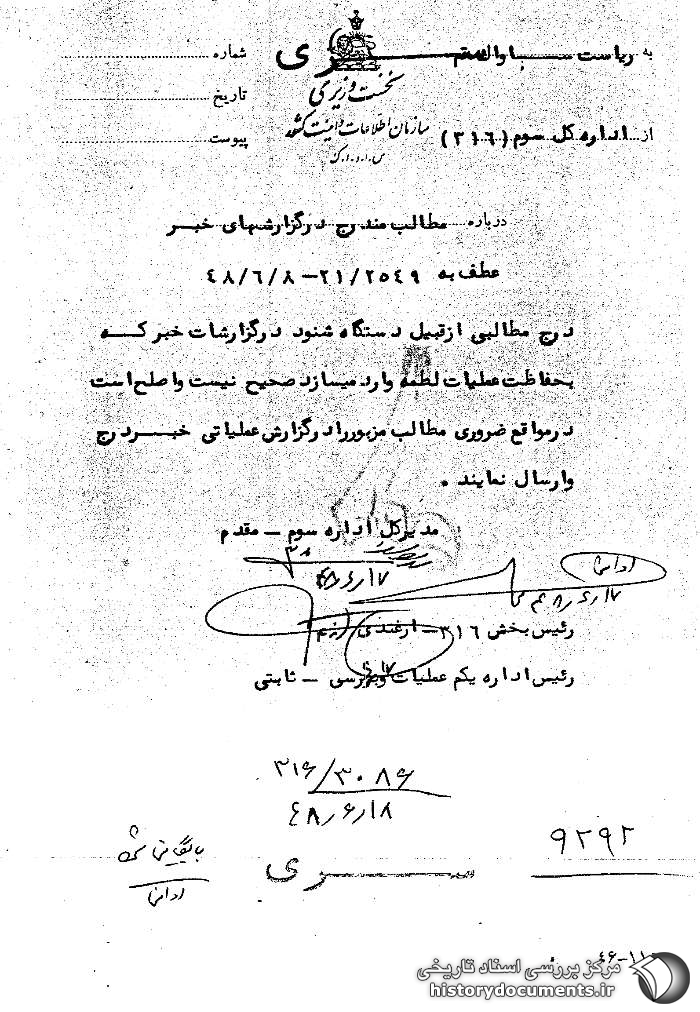 به ریاست ساواک قم
سری
شماره
نخست وزیری
تاریخ
سازمان اطلاعات و امنیت کشور
از اداره کل سوم (۳۱۶)
پیوست
س.ا.و.ا.ک
درباره مطالب مندرج درگزارشهای خبر
عطف به ۲۱/۲۵۴۹ - ۴۸/۶/۸
درج مطالبی ازقبیل دستگاه شنود درگزارشات خبر که
بحفاظت عملیات لطمه وارد میسازد صحیح نیست واصلح است
درمواقع ضروری مطالب مزبوررا درگزارش عملیاتی خبر درج
وارسال نمایند .
مدیرکل اداره سوم - مقدم
۴۸/۶/۱۷
۴۸/۶/۱۷
رئیس بخش ۳۱۶ - ارغندی
رئیس اداره یکم عملیات وبررسی - ثابتی
۳۱۶/۳۰۸۶
۴۸/۶/۱۸
۹۲۹۲
بایگانی شود
سری
۴۶-۱۱
مرکز بررسی اسناد تاریخی
historydocuments.ir